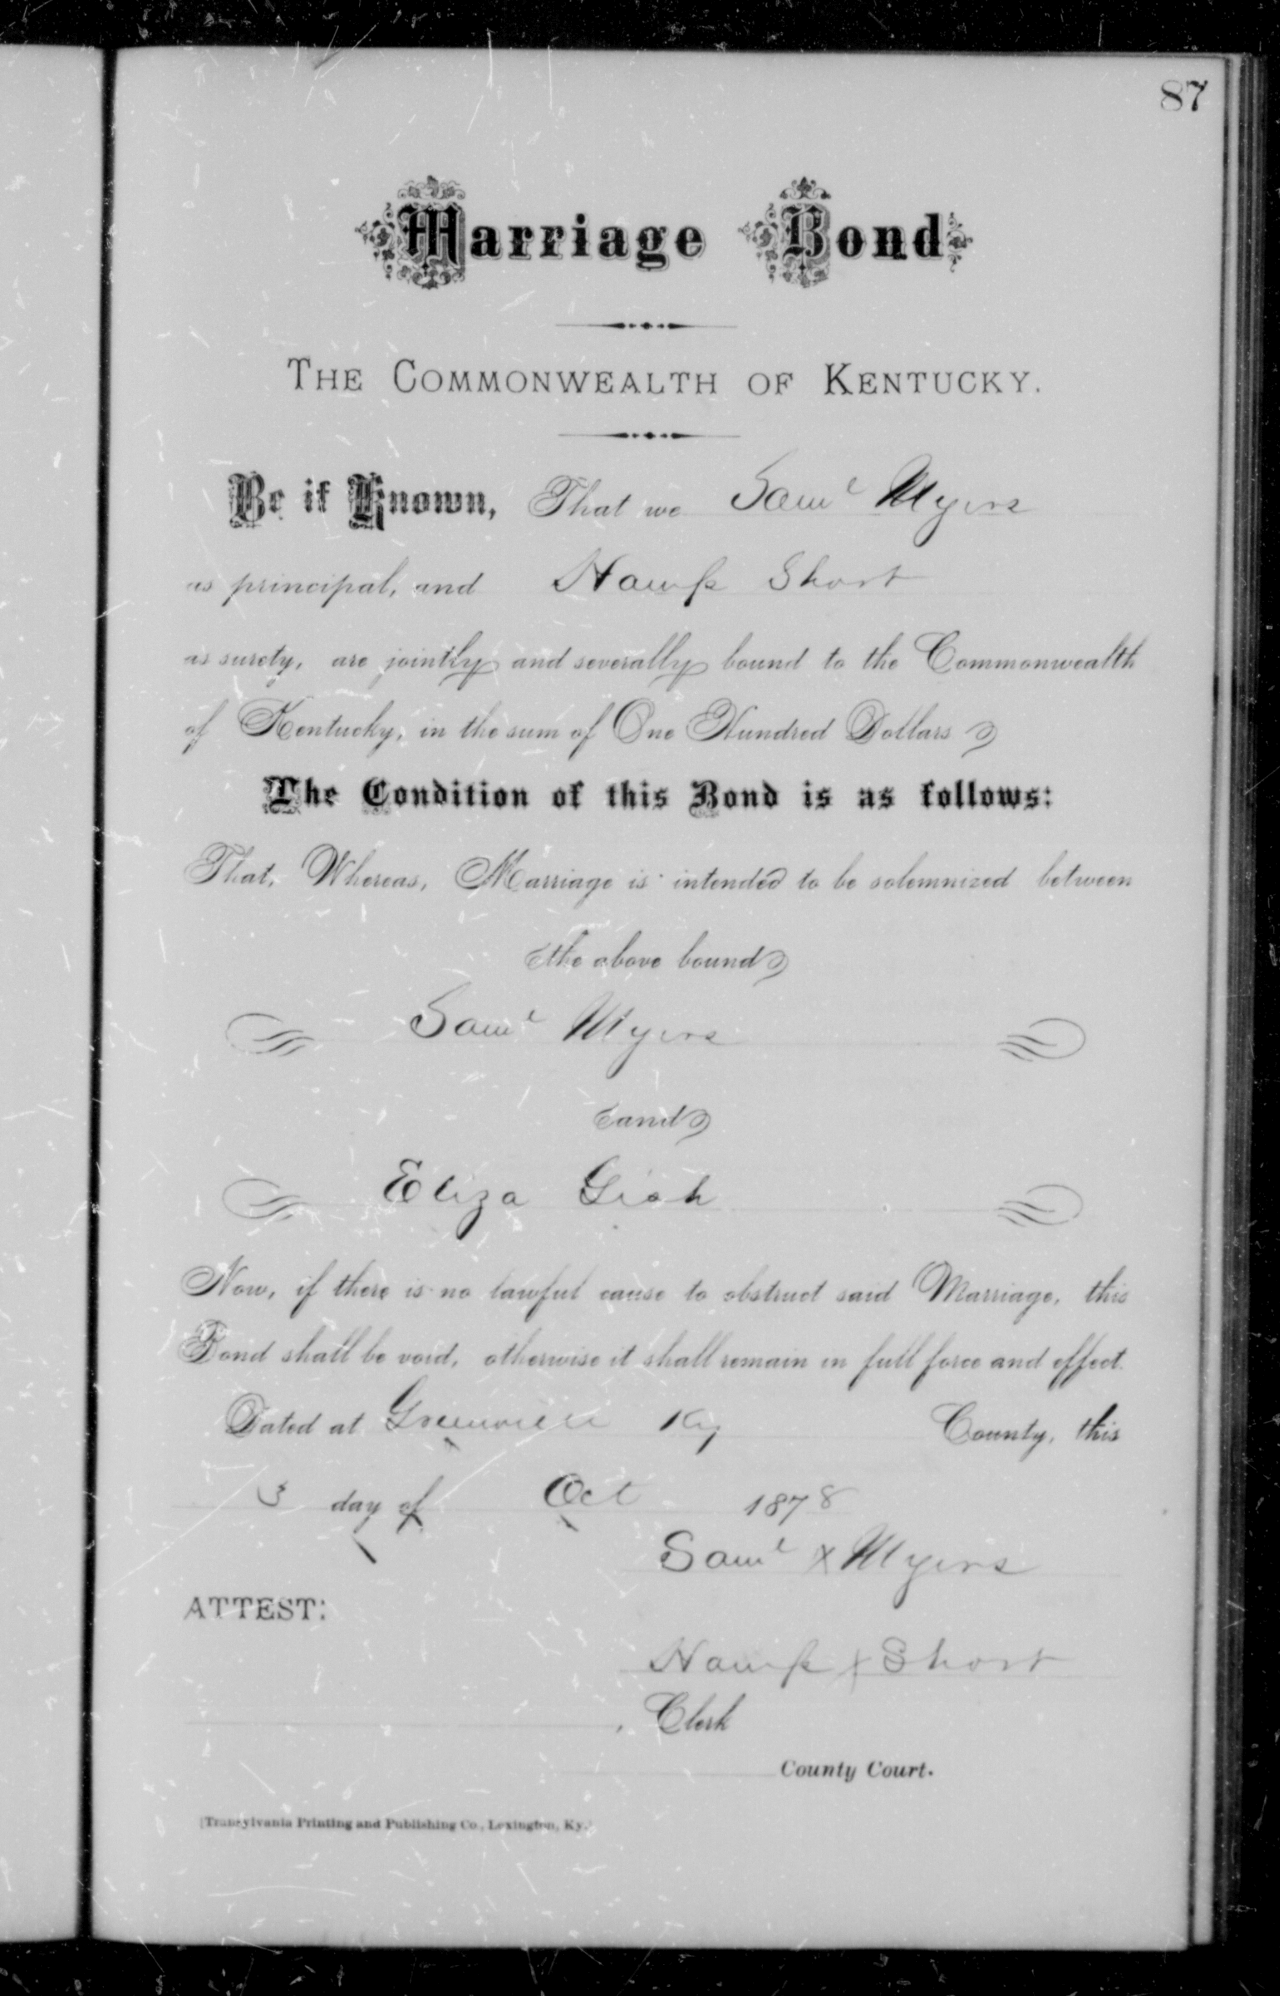 87
Marriage Bond
THE COMMONWEALTH OF KENTUCKY.
Be it Known, That we Saml Myers
as principal, and Hamp Short
as surety, are jointly and severally bound to the Commonwealth
of Kentucky, in the sum of One Hundred Dollars
The Condition of this Bond is as follows:
That, Whereas, Marriage is intended to be solemnized between
the above bound
Saml Myers
and
Eliza Gish
Now, if there is no lawful cause to obstruct said Marriage, this
Bond shall be void, otherwise it shall remain in full force and effect.
Dated at Greenville Ky County, this
3 day of Oct 1878
Saml X Myers
ATTEST:
Hamp X Short
, Clerk
County Court.
[Transylvania Printing and Publishing Co., Lexington, Ky.]